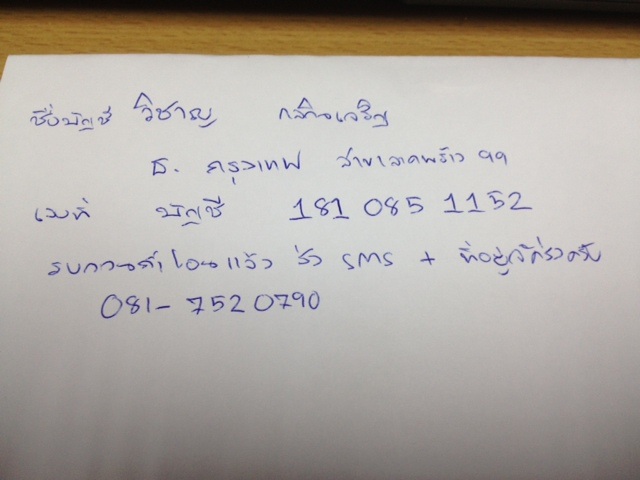 ชื่อบัญชี วิชาญ กลิ่นเจริญ
ธ. กรุงเทพ สาขาลาดพร้าว 99
เลขที่ บัญชี 181 085 1152
รบกวนถ้าโอนแล้ว ส่ง sms + ที่อยู่ให้ด้วยครับ
081-752 0790